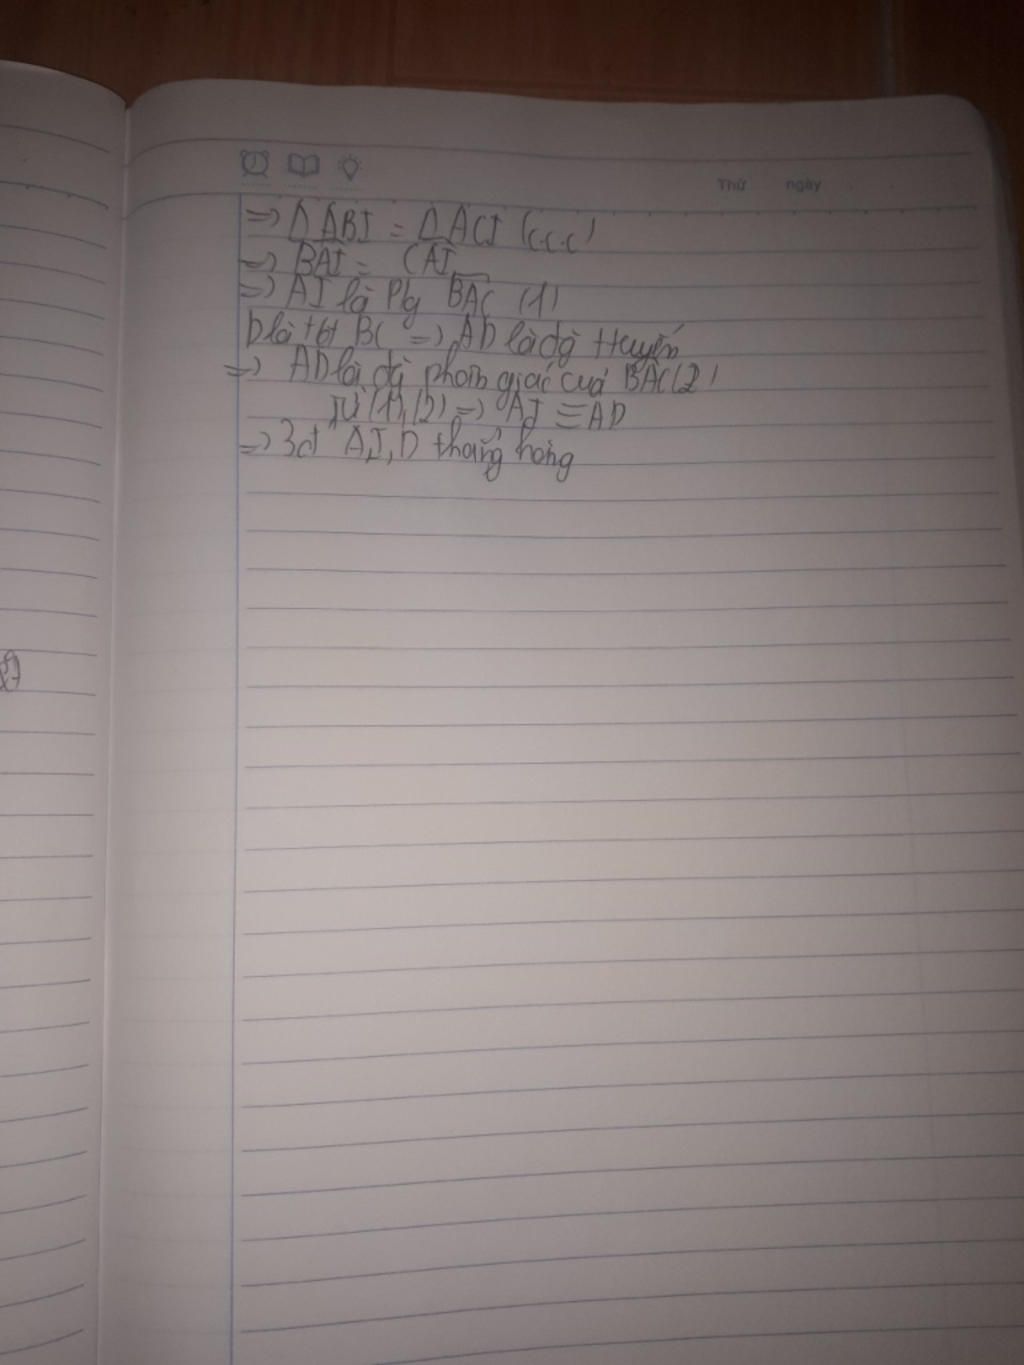 Thứ ngày
=> Δ ABI = Δ ACI (c.c.c)
=> BAI = CAI
=> AI là P/g BAC (1)
D là tđ BC => AD là đg tuyến
=> AD là đg phân giác cuả BAC (2)
Từ (1), (2) => AI ≡ AD
=> 3đ A, I, D thẳng hàng